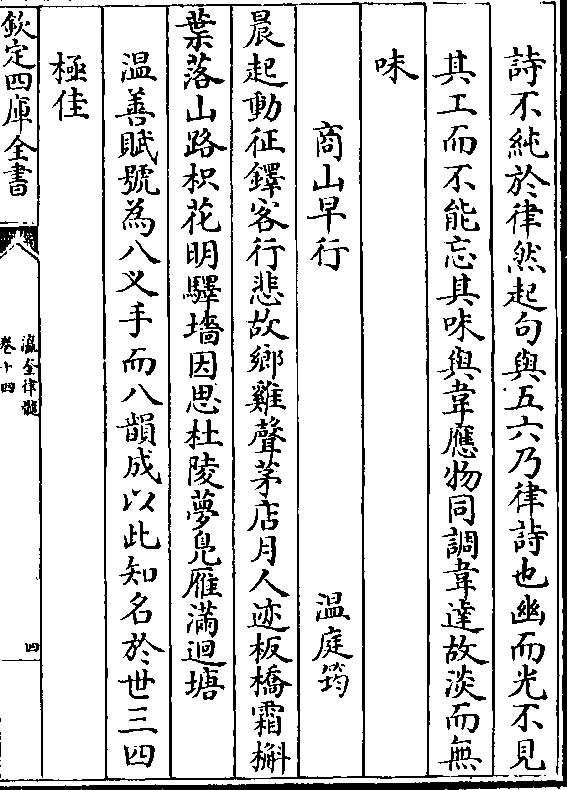 詩不純於律然起句與五六乃律詩也幽而光不見
其工而不能忘其味與韋應物同調韋達故淡而無
味
商山早行 温庭筠
晨起動征鐸客行悲故鄉雞聲茅店月人迹板橋霜槲
葉落山路枳花明驛墻因思杜陵夢鳧雁滿迴塘
温善賦號為八乂手而八韻成以此知名於世三四
極佳
欽定四庫全書
瀛奎律髓
卷十四
四